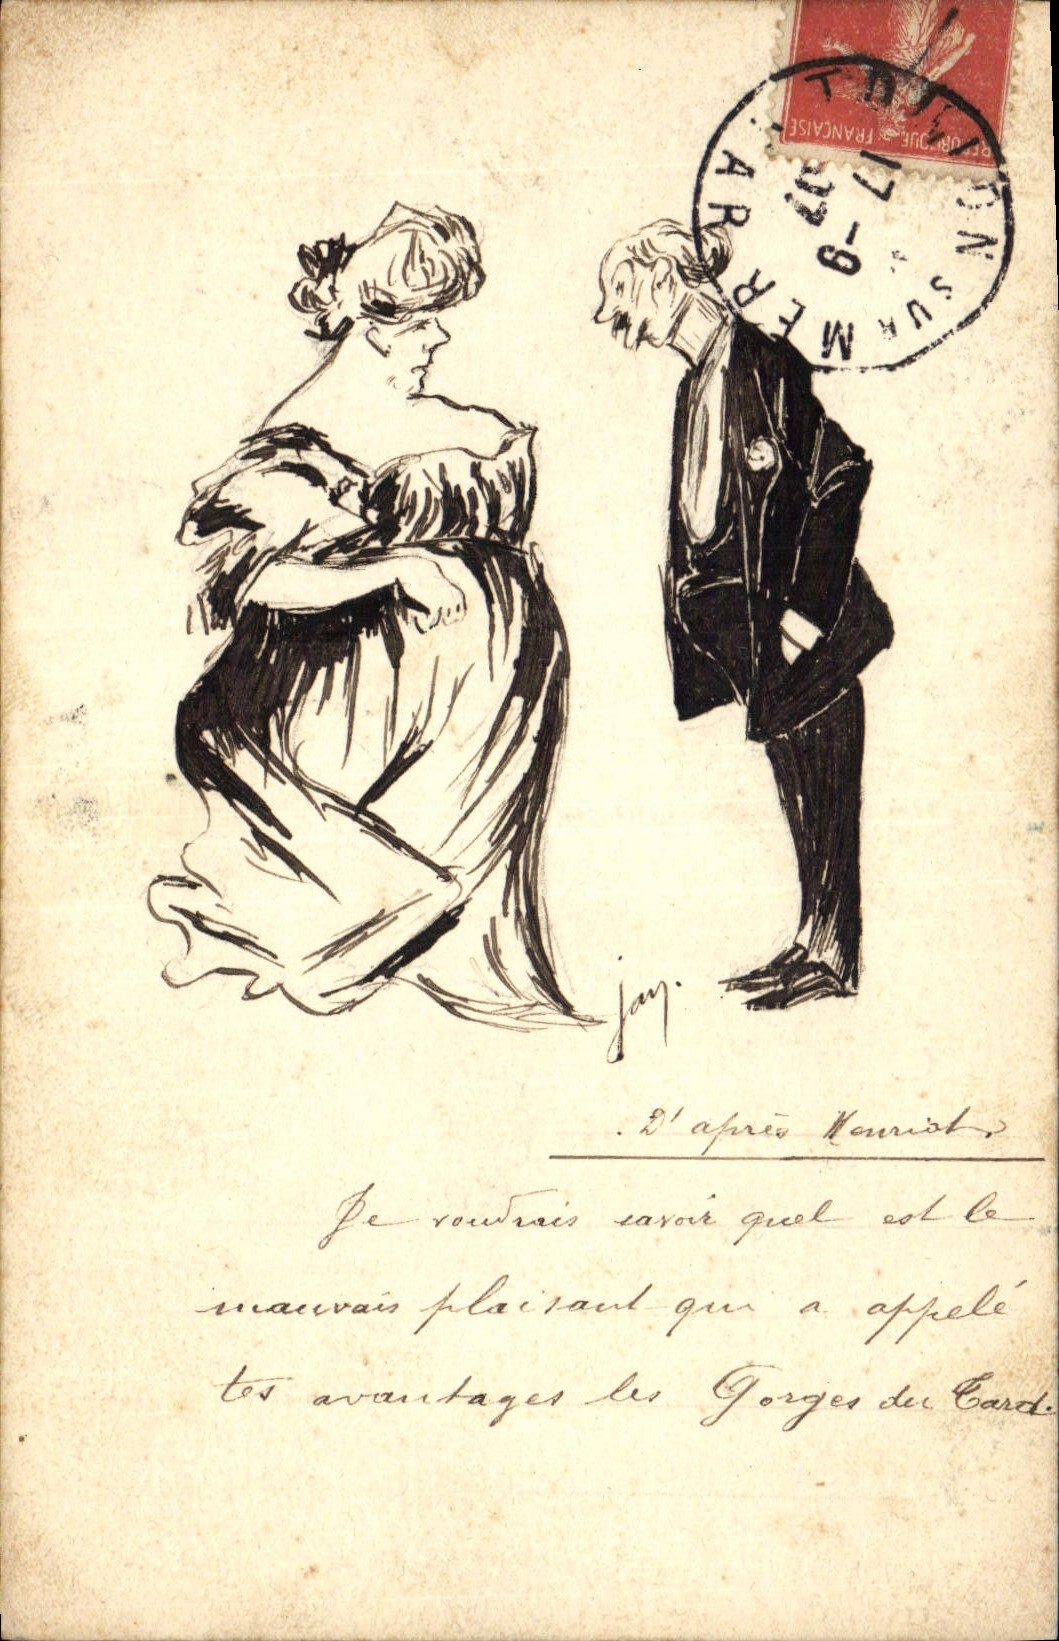 REPUBLIQUE FRANÇAISE
TOULON SUR MER
VAR
17-9
07
Jay.
D'après Henriot.
Je voudrais savoir quel est le
mauvais plaisant qui a appelé
tes avantages les Gorges du Tard.